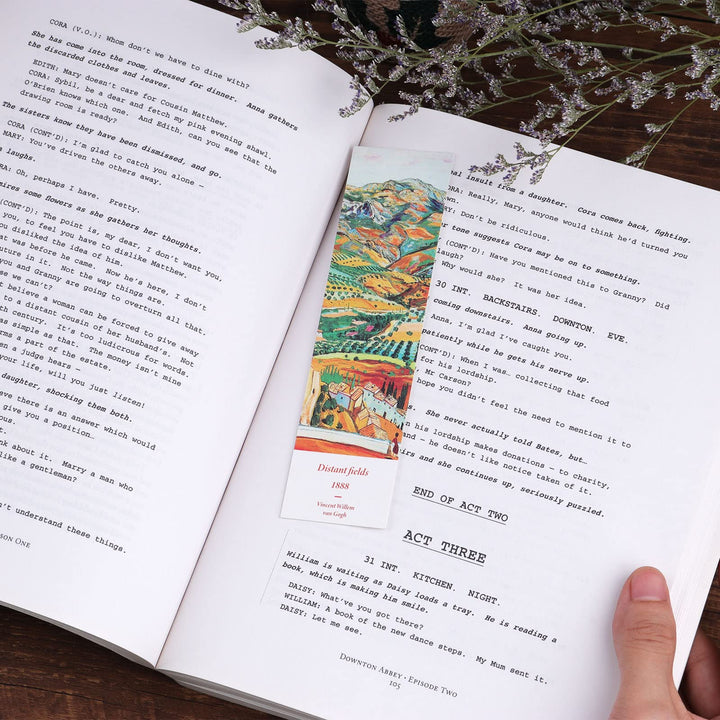 CORA (V.O.): Whom don't we have to dine with?
She has come into the room, dressed for dinner. Anna gathers
the discarded clothes and leaves.
EDITH: Mary doesn't care for Cousin Matthew.
CORA: Sybil, be a dear and fetch my pink evening shawl.
O'Brien knows which one. And Edith, can you see that the
drawing room is ready?
The sisters know they have been dismissed, and go.
CORA (CONT'D): I'm glad to catch you alone –
MARY: You've driven the others away.
laughs.
RA: Oh, perhaps I have. Pretty.
mires some flowers as she gathers her thoughts.
(CONT'D): The point is, my dear, I don't want you,
you, to feel you have to dislike Matthew.
ou disliked the idea of him.
at was before he came. Now he's here, I don't
uture in it. Not the way things are.
you and Granny are going to overturn all that.
se we can't?
t believe a woman can be forced to give away
to a distant cousin of her husband's. Not
th century. It's too ludicrous for words.
as simple as that. The money isn't mine
rms a part of the estate.
en a judge hears –
your life, will you just listen!
daughter, shocking them both.
eve there is an answer which would
give you a position…
k about it. Marry a man who
like a gentleman?
n't understand these things.
SON ONE
al insult from a daughter. Cora comes back, fighting.
RA: Really, Mary, anyone would think he'd turned you
wn.
Y: Don't be ridiculous.
tone suggests Cora may be on to something.
(CONT'D): Have you mentioned this to Granny? Did
laugh?
Why would she? It was her idea.
30 INT. BACKSTAIRS. DOWNTON. EVE.
coming downstairs. Anna going up.
Anna, I'm glad I've caught you.
patiently while he gets his nerve up.
CONT'D): When I was… collecting that food
for his lordship.
Mr Carson?
hope you didn't feel the need to mention it to
s. She never actually told Bates, but…
n his lordship makes donations – to charity,
and – he doesn't like notice taken of it.
irs and she continues up, seriously puzzled.
END OF ACT TWO
ACT THREE
31 INT. KITCHEN. NIGHT.
William is waiting as Daisy loads a tray. He is reading a
book, which is making him smile.
DAISY: What've you got there?
WILLIAM: A book of the new dance steps. My Mum sent it.
DAISY: Let me see.
DOWNTON ABBEY · EPISODE TWO
105
Distant fields
1888
Vincent Willem
van Gogh